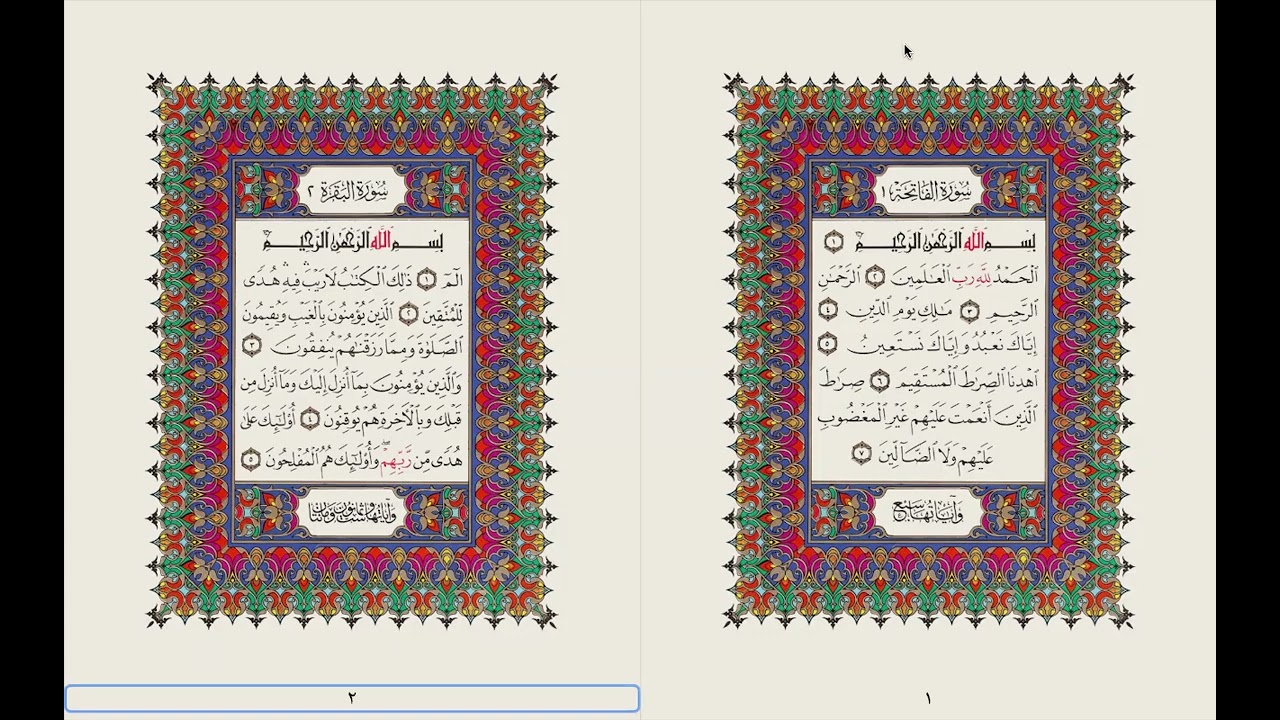 سُورَةُ الفَاتِحَةِ ١
بِسْمِ ٱللَّهِ ٱلرَّحْمَٰنِ ٱلرَّحِيمِ ١
ٱلْحَمْدُ لِلَّهِ رَبِّ ٱلْعَٰلَمِينَ ٢ ٱلرَّحْمَٰنِ
ٱلرَّحِيمِ ٣ مَٰلِكِ يَوْمِ ٱلدِّينِ ٤
إِيَّاكَ نَعْبُدُ وَإِيَّاكَ نَسْتَعِينُ ٥
ٱهْدِنَا ٱلصِّرَٰطَ ٱلْمُسْتَقِيمَ ٦ صِرَٰطَ
ٱلَّذِينَ أَنْعَمْتَ عَلَيْهِمْ غَيْرِ ٱلْمَغْضُوبِ
عَلَيْهِمْ وَلَا ٱلضَّآلِّينَ ٧
وَآيَاتُهَا سَبْعٌ
١
سُورَةُ البَقَرَةِ ٢
بِسْمِ ٱللَّهِ ٱلرَّحْمَٰنِ ٱلرَّحِيمِ
الٓمٓ ١ ذَٰلِكَ ٱلْكِتَٰبُ لَا رَيْبَ ۛ فِيهِ ۛ هُدًى
لِّلْمُتَّقِينَ ٢ ٱلَّذِينَ يُؤْمِنُونَ بِٱلْغَيْبِ وَيُقِيمُونَ
ٱلصَّلَوٰةَ وَمِمَّا رَزَقْنَٰهُمْ يُنفِقُونَ ٣
وَٱلَّذِينَ يُؤْمِنُونَ بِمَآ أُنزِلَ إِلَيْكَ وَمَآ أُنزِلَ مِن
قَبْلِكَ وَبِٱلْءَاخِرَةِ هُمْ يُوقِنُونَ ٤ أُو۟لَٰٓئِكَ عَلَىٰ
هُدًى مِّن رَّبِّهِمْ ۖ وَأُو۟لَٰٓئِكَ هُمُ ٱلْمُفْلِحُونَ ٥
وَآيَاتُهَا سِتٌّ وَثَمَانُونَ وَمِائَتَانِ
٢